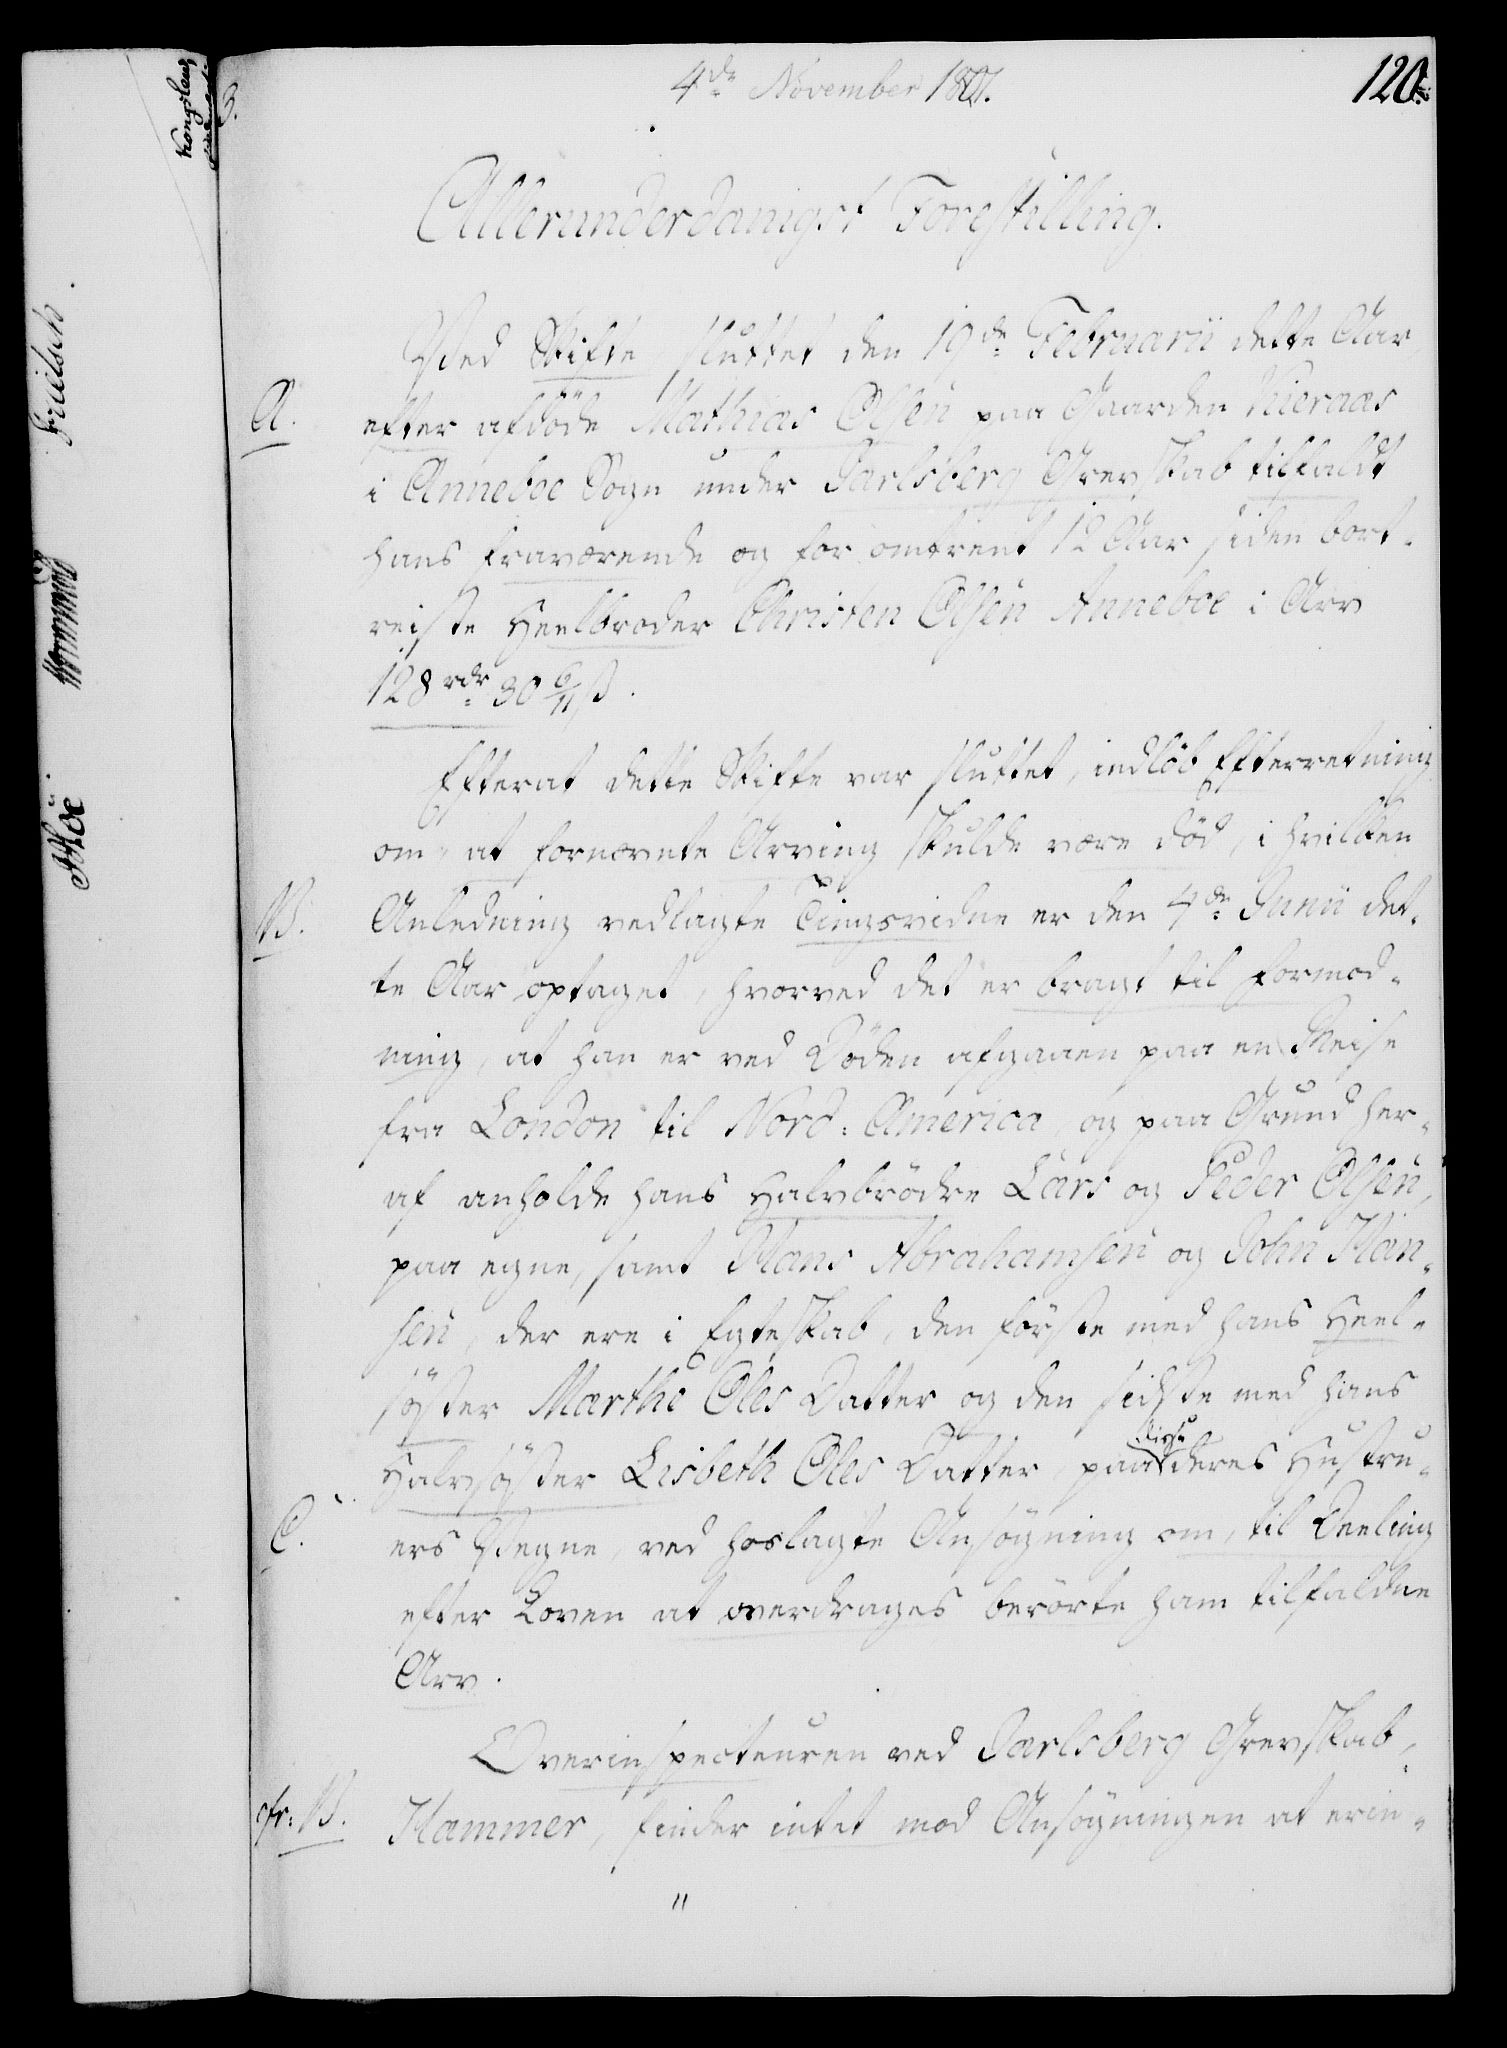 4de November 1801.
120.
3.
Allerunderdanigst Forestilling.
Ved Skifte sluttet den 19de Februarii dette Aar
A.
efter afdöde Mathias Olsen paa Gaarden Kieraas
i Anneboe Sogn under Jarlsberg Grevskab tilfaldt
hans fraværende og for omtrent 12 Aar siden bort-
reiste Heelbroder Christen Olsen Anneboe i Arv
128 rdr 30 6/11 ß.
Efterat dette Skifte var sluttet, indlöb Efterretning
om, at fornævnte Arving skulde være död, i hvilken
B.
Anledning vedlagte Tingsvidne er den 4de Junii det-
te Aar optaget, hvorved det er bragt til Formod-
ning, at han er ved Döden afgaaen paa en Reise
fra London til Nord-America, og paa Grund her-
af anholde hans Halvbrödre Lars og Peder Olsen,
paa egne, samt Hans Abrahamsen og John Han-
sen, der ere i Egteskab, den förste med hans Heel-
söster Marthe Oles Datter og den sidste med hans
Halvsöster Lisbeth Oles Datter, paa disse deres Hustru-
C.
ers Vegne, ved hoslagte Ansögning om, til Deeling
efter Loven at overdrages berörte ham tilfaldne
Arv.
Overinspecteuren ved Jarlsberg Grevskab,
cfr. B.
Hammer, finder intet mod Ansögningen at erin-
"